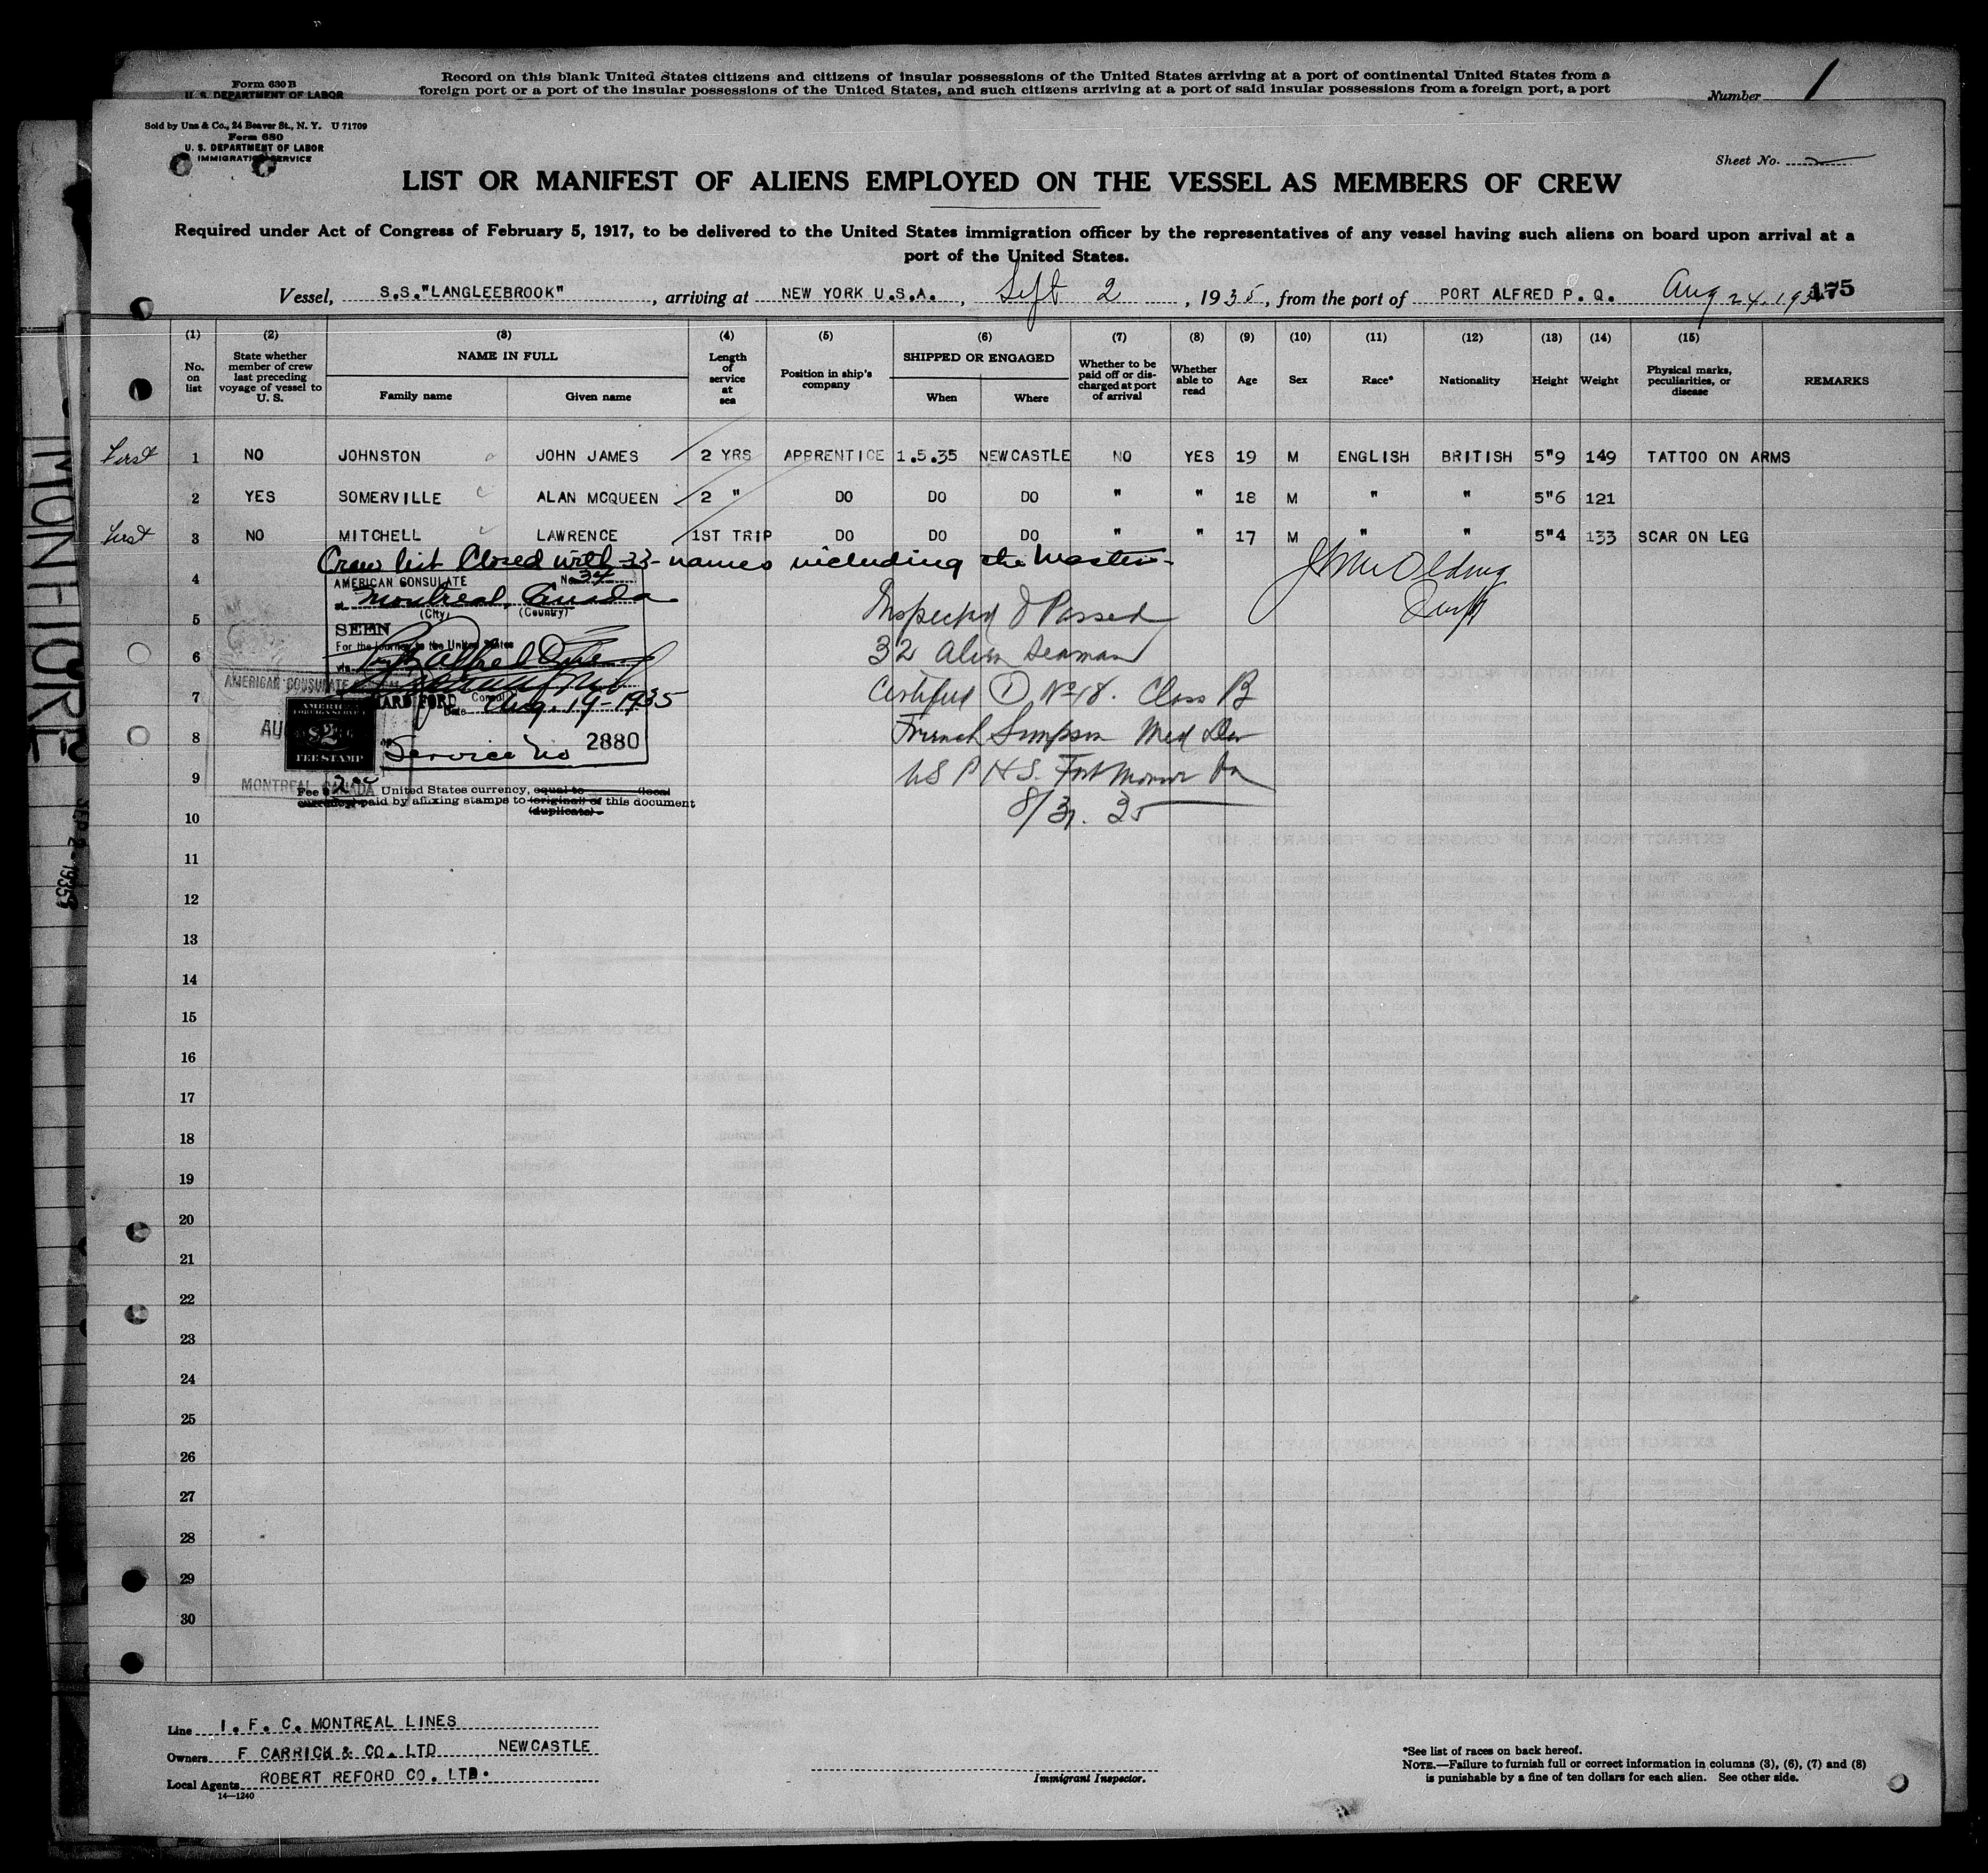 Form 630 B
U. S. DEPARTMENT OF LABOR
Record on this blank United States citizens and citizens of insular possessions of the United States arriving at a port of continental United States from a
foreign port or a port of the insular possessions of the United States, and such citizens arriving at a port of said insular possessions from a foreign port, a port
Number 1
Sold by Unz & Co., 24 Beaver St., N. Y. U 71709
Form 680
U. S. DEPARTMENT OF LABOR
IMMIGRATION SERVICE
Sheet No. 2
LIST OR MANIFEST OF ALIENS EMPLOYED ON THE VESSEL AS MEMBERS OF CREW
Required under Act of Congress of February 5, 1917, to be delivered to the United States immigration officer by the representatives of any vessel having such aliens on board upon arrival at a
port of the United States.
Vessel, S.S."LANGLEEBROOK", arriving at NEW YORK U.S.A., Sept 2, 1935, from the port of PORT ALFRED P. Q. Aug 24. 193 175
(1) (2) (3) (4) (5) (6) (7) (8) (9) (10) (11) (12) (13) (14) (15)
No. on list
State whether member of crew last preceding voyage of vessel to U. S.
NAME IN FULL
Family name Given name
Length of service at sea
Position in ship's company
SHIPPED OR ENGAGED
When Where
Whether to be paid off or dis-charged at port of arrival
Whether able to read
Age
Sex
Race*
Nationality
Height
Weight
Physical marks, peculiarities, or disease
REMARKS
First 1 NO JOHNSTON JOHN JAMES 2 YRS APPRENTICE 1.5.35 NEWCASTLE NO YES 19 M ENGLISH BRITISH 5"9 149 TATTOO ON ARMS
2 YES SOMERVILLE ALAN MCQUEEN 2 " DO DO DO " " 18 M " " 5"6 121
First 3 NO MITCHELL LAWRENCE 1ST TRIP DO DO DO " " 17 M " " 5"4 133 SCAR ON LEG
Crew list Closed with -33- names including the Master-
4
AMERICAN CONSULATE No. 34
at Montreal, Canada
(City) (Country)
5
SEEN
For the journey to the United States
via Port Alfred Que
6
AMERICAN CONSULATE
7
Consul
Date Aug. 19-1935
AMERICAN
FOREIGN SERVICE
$2
FEE STAMP
8
Service No 2880
9
MONTREAL, CANADA
Fee $2.00 United States currency, equal to (local
currency) paid by affixing stamps to (original) of this document
(duplicate)
Inspected & Passed
32 Alien Seaman
Certified 1 No 18. Class B
French Simpson Med
US P H S. Fort Monroe Va
8/31. 35
10
11
12
13
14
15
16
17
18
19
20
21
22
23
24
25
26
27
28
29
30
MONTIORE
SEP 2 - 1935
Line I. F. C. MONTREAL LINES
Owners F CARRICK & CO. LTD NEWCASTLE
Local Agents ROBERT REFORD CO. LTD.
14—1240
Immigrant Inspector.
*See list of races on back hereof.
NOTE.—Failure to furnish full or correct information in columns (3), (6), (7) and (8)
is punishable by a fine of ten dollars for each alien. See other side.